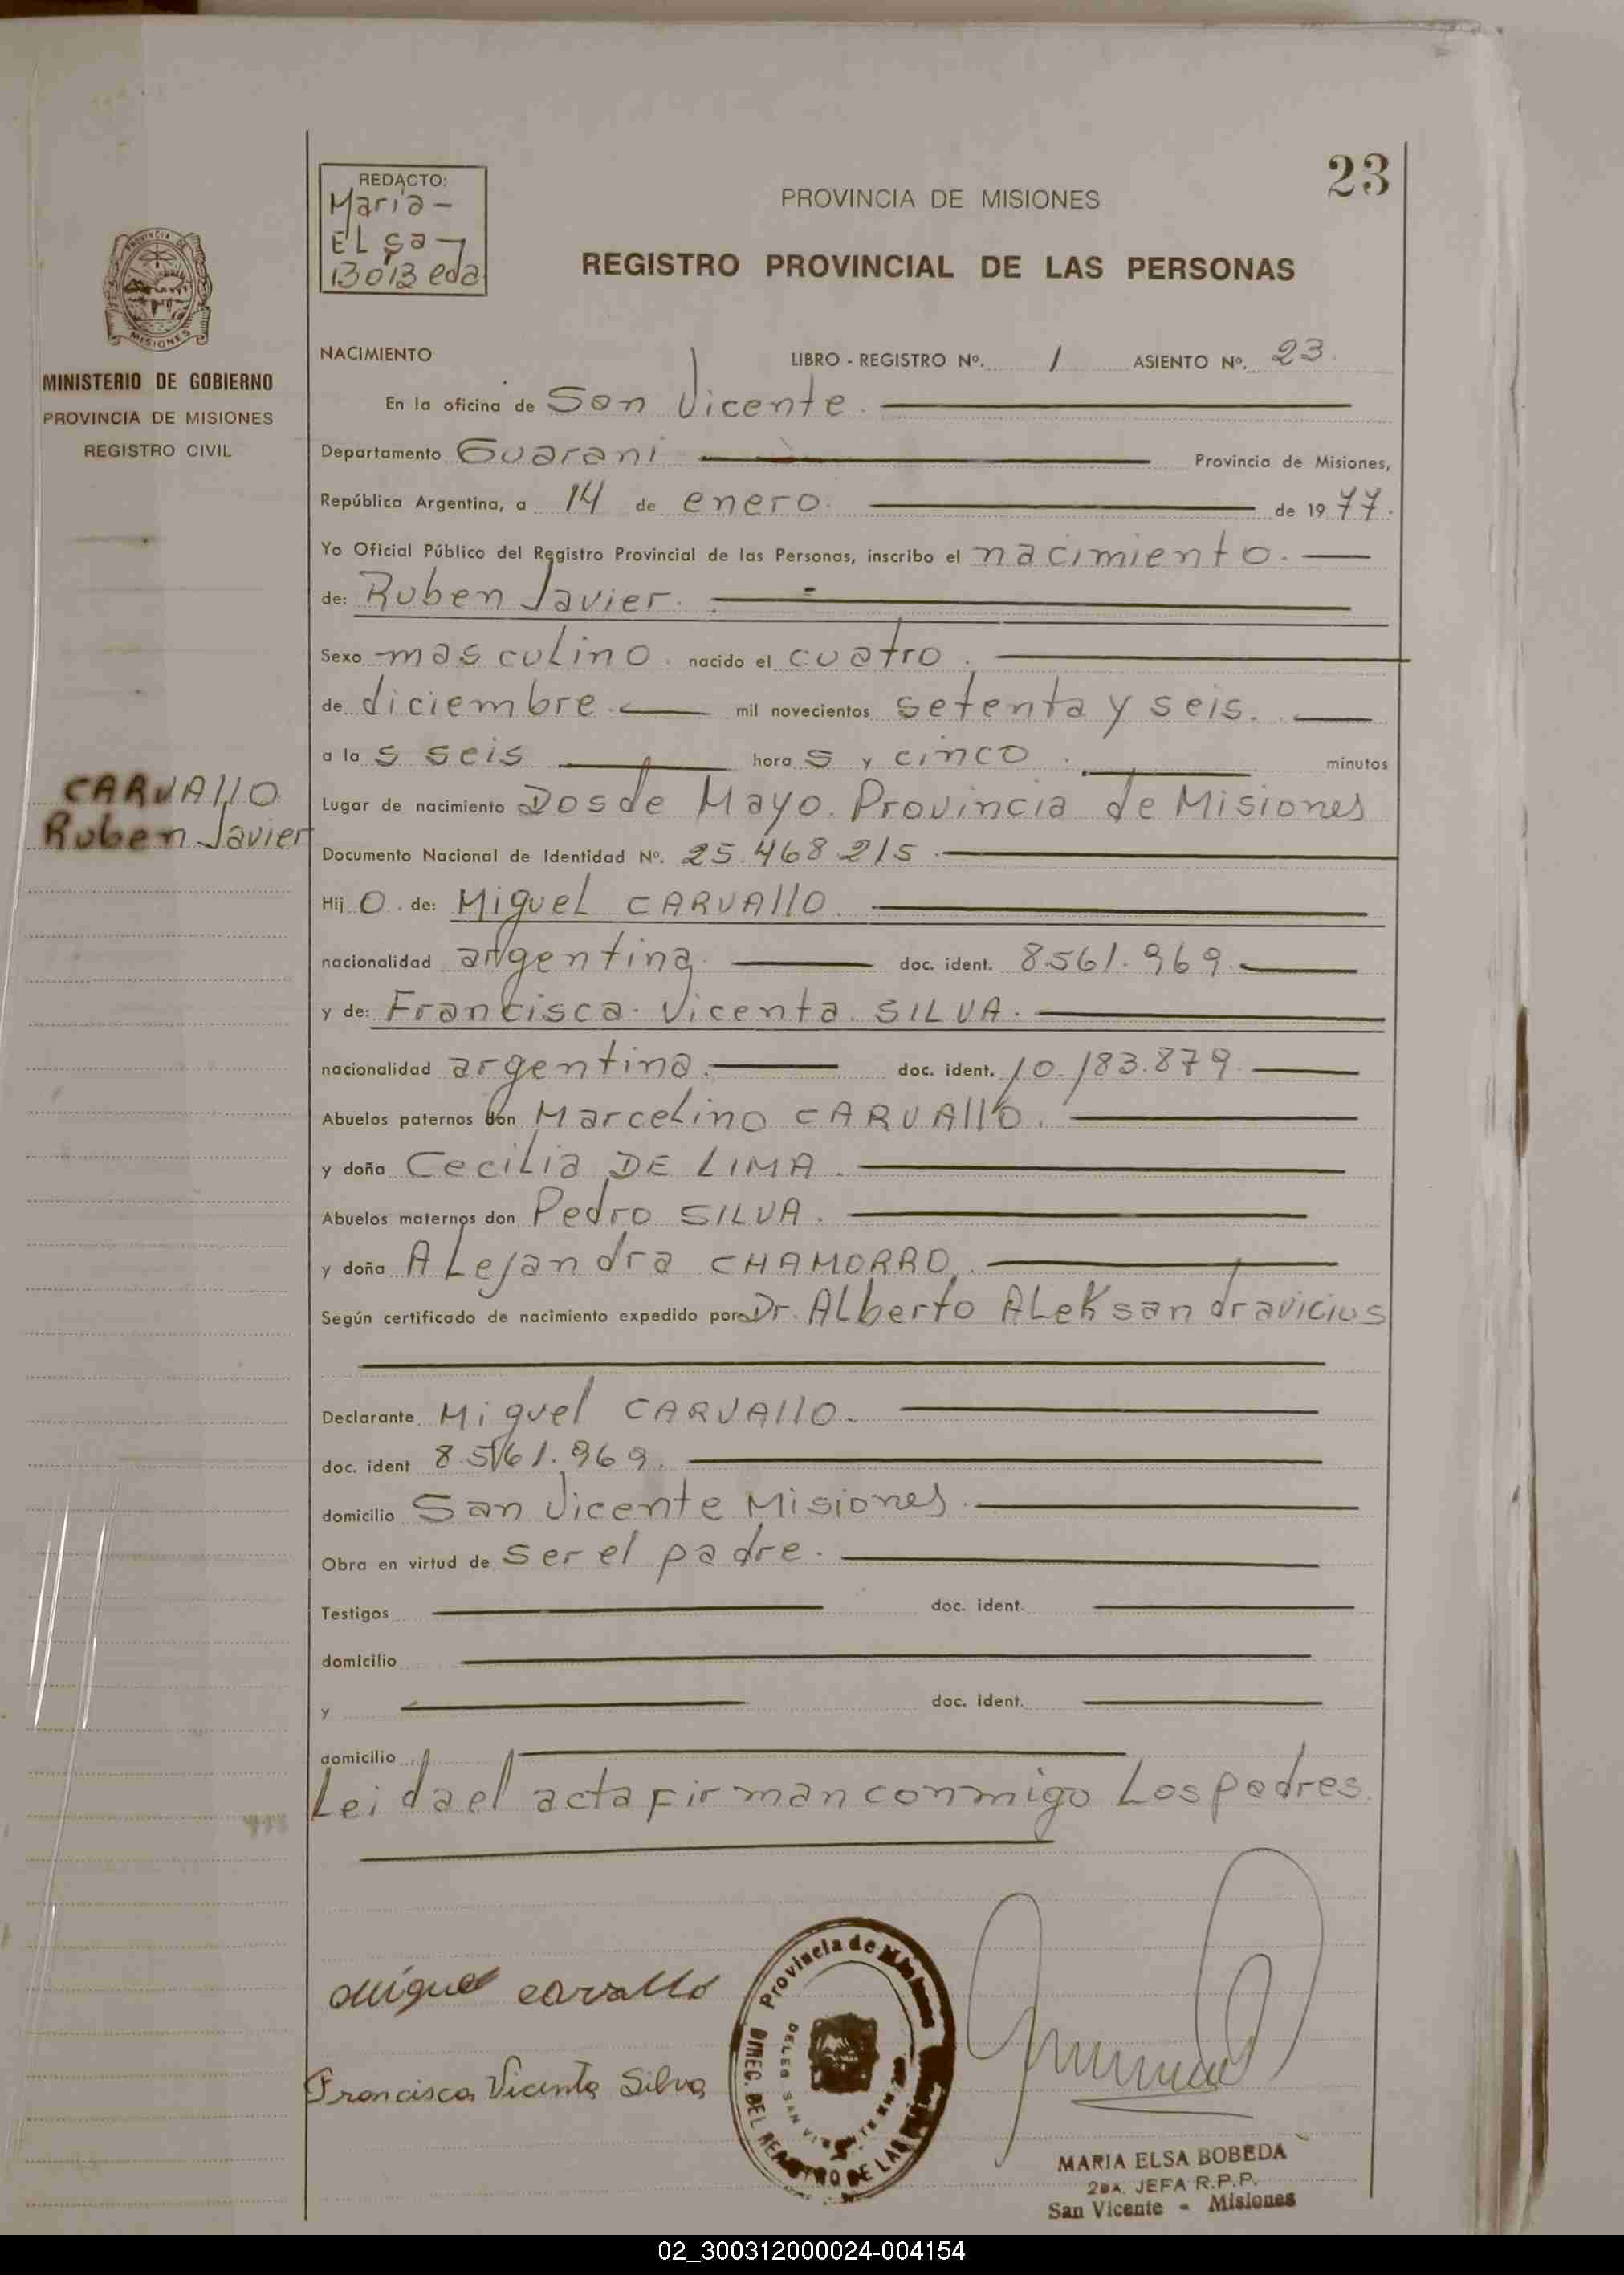 23
REDACTO:
Maria -
ELsa -
Bobeda
PROVINCIA DE MISIONES
REGISTRO PROVINCIAL DE LAS PERSONAS
PROVINCIA DE
MISIONES
MINISTERIO DE GOBIERNO
PROVINCIA DE MISIONES
REGISTRO CIVIL
NACIMIENTO LIBRO - REGISTRO Nº. 1 ASIENTO Nº. 23.
En la oficina de San Vicente.
Departamento Guarani Provincia de Misiones,
República Argentina, a 14 de enero. de 1977.
Yo Oficial Público del Registro Provincial de las Personas, inscribo el nacimiento.
de: Ruben Javier.
Sexo masculino. nacido el cuatro.
de diciembre. mil novecientos setenta y seis.
a las seis horas y cinco. minutos
CARVAllO
Ruben Javier
Lugar de nacimiento Dos de Mayo. Provincia de Misiones
Documento Nacional de Identidad Nº. 25.468.215.
Hijo. de: Miguel CARVAllO.
nacionalidad argentina. doc. ident. 8561.969.
y de: Francisca Vicenta SILVA.
nacionalidad argentina. doc. ident. 10.183.879.
Abuelos paternos don Marcelino CARVAllO.
y doña Cecilia DE LIMA.
Abuelos maternos don Pedro SILVA.
y doña ALejandra CHAMORRO.
Según certificado de nacimiento expedido por Dr. ALberto ALeKsandravicius
Declarante Miguel CARVAllO.
doc. ident 8.561.969.
domicilio San Vicente Misiones.
Obra en virtud de ser el padre.
Testigos doc. ident.
domicilio
y doc. ident.
domicilio
Leida el acta firman conmigo Los padres.
Miguel Carvallo
Francisca Vicenta Silva
Provincia de Misiones
DIREC. DEL REGISTRO DE LAS
DELEG SAN VICENTE
MARIA ELSA BOBEDA
2DA. JEFA R.P.P.
San Vicente - Misiones
02_300312000024-004154